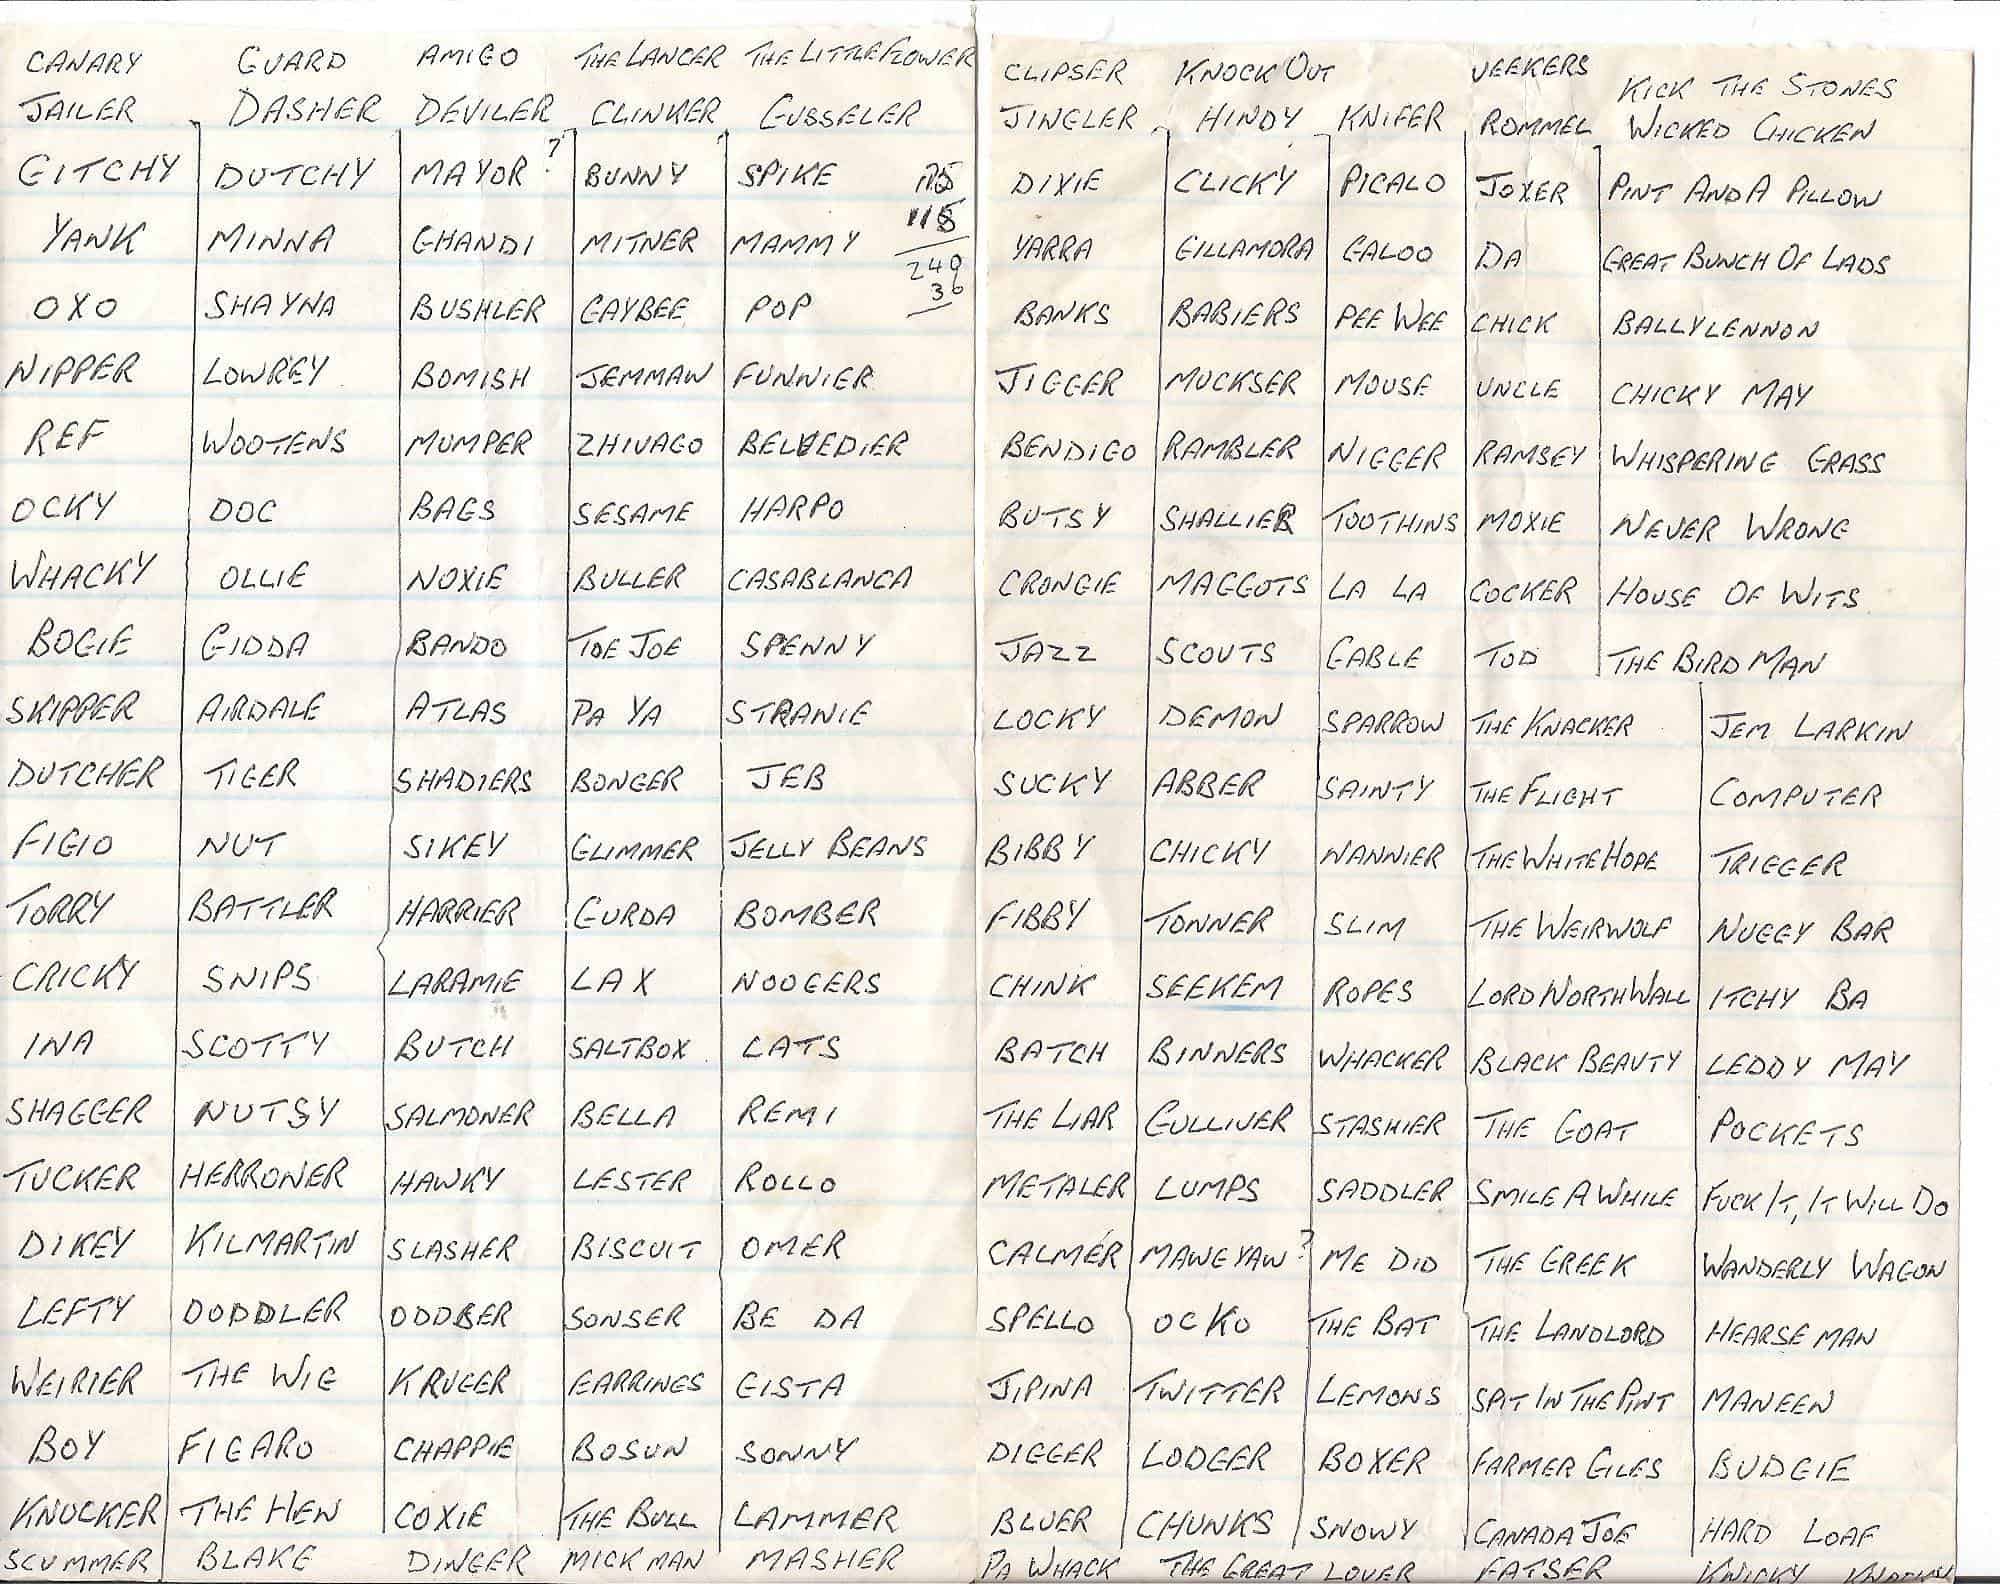 CANARY GUARD AMIGO THE LANCER THE LITTLE FLOWER
JAILER DASHER DEVILER CLINKER GUSSELER
GITCHY DUTCHY MAYOR ? BUNNY SPIKE
YANK MINNA GHANDI MITNER MAMMY 115
OXO SHAYNA BUSHLER GAYBEE POP 240
36
NIPPER LOWREY BOMISH JEMMAW FUNNIER
REF WOOTENS MUMPER ZHIVAGO BELVEDIER
OCKY DOC BAGS SESAME HARPO
WHACKY OLLIE NOXIE BULLER CASABLANCA
BOGIE GIDDA BANDO TOE JOE SPENNY
SKIPPER AIRDALE ATLAS PA YA STRANIE
DUTCHER TIGER SHADIERS BONGER JEB
FIGIO NUT SIKEY GLIMMER JELLY BEANS
TORRY BATTLER HARRIER GURDA BOMBER
CRICKY SNIPS LARAMIE LAX NOOGERS
INA SCOTTY BUTCH SALTBOX LATS
SHAGGER NUTSY SALMONER BELLA REMI
TUCKER HERRONER HAWKY LESTER ROLLO
DIKEY KILMARTIN SLASHER BISCUIT OMER
LEFTY DODDLER ODDBER SONSER BE DA
WEIRIER THE WIG KRUGER EARRINGS GISTA
BOY FIGARO CHAPPIE BOSUN SONNY
KNOCKER THE HEN COXIE THE BULL LAMMER
SCUMMER BLAKE DINGER MICK MAN MASHER
CLIPSER KNOCK OUT VEEKERS KICK THE STONES
JINGLER HINDY KNIFER ROMMEL WICKED CHICKEN
DIXIE CLICKY PICALO JOXER PINT AND A PILLOW
YARRA GILLAMORA GALOO DA GREAT BUNCH OF LADS
BANKS BABIERS PEE WEE CHICK BALLYLENNON
JIGGER MUCKSER MOUSE UNCLE CHICKY MAY
BENDIGO RAMBLER NIGGER RAMSEY WHISPERING GRASS
BUTSY SHALLIER TOOTHINS MOXIE NEVER WRONG
CRONGIE MAGGOTS LA LA COCKER HOUSE OF WITS
JAZZ SCOUTS GABLE TOD THE BIRD MAN
LOCKY DEMON SPARROW THE KNACKER JEM LARKIN
SUCKY ABBER SAINTY THE FLIGHT COMPUTER
BIBBY CHICKY WANNIER THE WHITE HOPE TRIGGER
FIBBY TONNER SLIM THE WEIRWOLF NUGGY BAR
CHINK SEEKEM ROPES LORD NORTHWALL ITCHY BA
BATCH BINNERS WHACKER BLACK BEAUTY LEDDY MAY
THE LIAR GULLIVER STASHIER THE GOAT POCKETS
METALER LUMPS SADDLER SMILE A WHILE FUCK IT, IT WILL DO
CALMÉR MAWGYAW ? ME DID THE GREEK WANDERLY WAGON
SPELLO OCKO THE BAT THE LANDLORD HEARSE MAN
JIPINA TWITTER LEMONS SPIT IN THE PINT MANEEN
DIGGER LODGER BOXER FARMER GILES BUDGIE
BLUER CHUNKS SNOWY CANADA JOE HARD LOAF
PA WHACK THE GREAT LOVER FATSER KNICKY